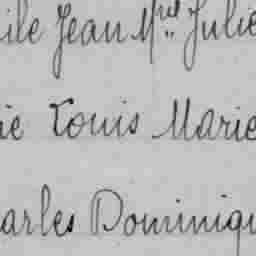 ile Jean M^el Julie
ie Louis Marie
arles Dominiqu